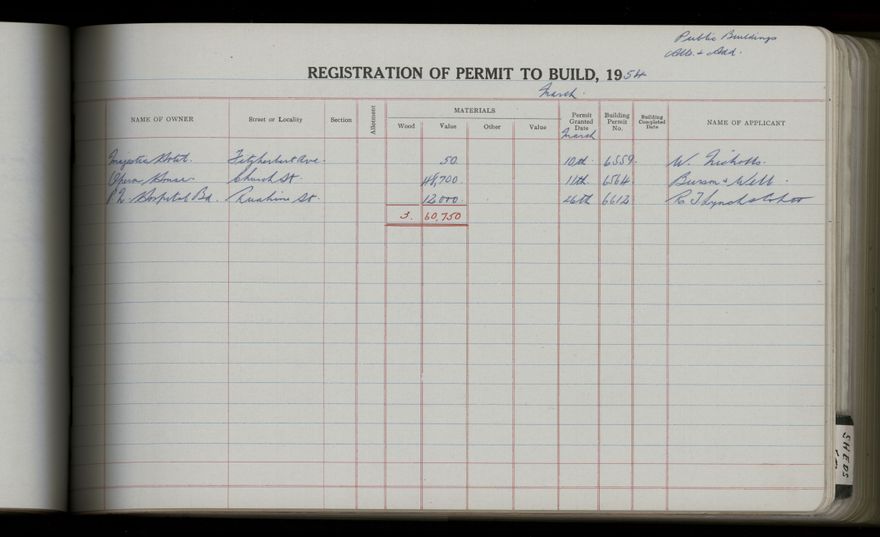 Public Buildings
Alts. + Add.
REGISTRATION OF PERMIT TO BUILD, 1954
March.
NAME OF OWNER Street or Locality Section Allotment MATERIALS Permit Granted Date Building Permit No. Building Completed Date NAME OF APPLICANT
Wood Value Other Value March
Majestic Hotel. Fitzherbert Ave. 50. 10th. 6559. W. Nicholls.
Opera House. Church St. 48,700 11th 6564. + Webb.
P.N. Hospital Bd. Ruahine St. 12000. 26th 6612
3. 60,750
SHEDS